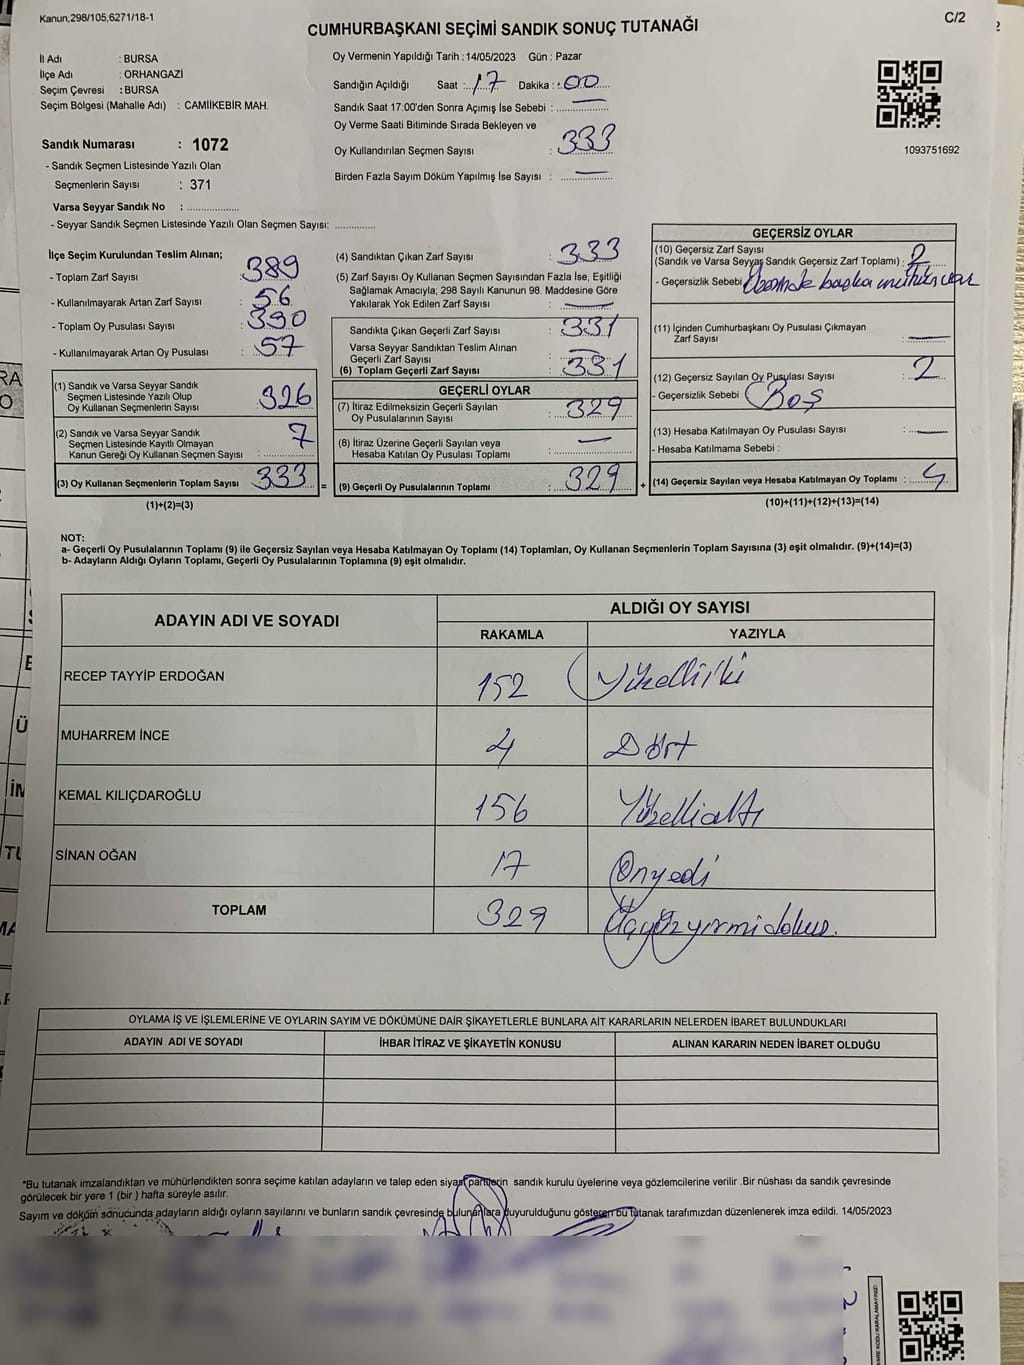 Kanun,298/105,6271/18-1
C/2
CUMHURBAŞKANI SEÇİMİ SANDIK SONUÇ TUTANAĞI
İl Adı : BURSA
İlçe Adı : ORHANGAZİ
Seçim Çevresi : BURSA
Seçim Bölgesi (Mahalle Adı) : CAMİİKEBİR MAH.
Oy Vermenin Yapıldığı Tarih : 14/05/2023 Gün : Pazar
Sandığın Açıldığı Saat : 17 Dakika : 00
Sandık Saat 17:00'den Sonra Açımış İse Sebebi : —
Oy Verme Saati Bitiminde Sırada Bekleyen ve
Oy Kullandırılan Seçmen Sayısı : 333
Birden Fazla Sayım Döküm Yapılmış İse Sayısı : —
1093751692
Sandık Numarası : 1072
- Sandık Seçmen Listesinde Yazılı Olan
Seçmenlerin Sayısı : 371
Varsa Seyyar Sandık No : ..................
- Seyyar Sandık Seçmen Listesinde Yazılı Olan Seçmen Sayısı: ..............
İlçe Seçim Kurulundan Teslim Alınan;
- Toplam Zarf Sayısı : 389
- Kullanılmayarak Artan Zarf Sayısı : 56
- Toplam Oy Pusulası Sayısı : 390
- Kullanılmayarak Artan Oy Pusulası : 57
(1) Sandık ve Varsa Seyyar Sandık
Seçmen Listesinde Yazılı Olup
Oy Kullanan Seçmenlerin Sayısı : 326
(2) Sandık ve Varsa Seyyar Sandık
Seçmen Listesinde Kayıtlı Olmayan
Kanun Gereği Oy Kullanan Seçmen Sayısı : 7
(3) Oy Kullanan Seçmenlerin Toplam Sayısı : 333 =
(1)+(2)=(3)
(4) Sandıktan Çıkan Zarf Sayısı : 333
(5) Zarf Sayısı Oy Kullanan Seçmen Sayısından Fazla İse, Eşitliği
Sağlamak Amacıyla, 298 Sayılı Kanunun 98. Maddesine Göre
Yakılarak Yok Edilen Zarf Sayısı : —
Sandıkta Çıkan Geçerli Zarf Sayısı : 331
Varsa Seyyar Sandıktan Teslim Alınan
Geçerli Zarf Sayısı : —
(6) Toplam Geçerli Zarf Sayısı : 331
GEÇERLİ OYLAR
(7) İtiraz Edilmeksizin Geçerli Sayılan
Oy Pusulalarının Sayısı : 329
(8) İtiraz Üzerine Geçerli Sayılan veya
Hesaba Katılan Oy Pusulası Toplamı : —
(9) Geçerli Oy Pusulalarının Toplamı : 329 +
GEÇERSİZ OYLAR
(10) Geçersiz Zarf Sayısı
(Sandık ve Varsa Seyyar Sandık Geçersiz Zarf Toplamı) : 2
- Geçersizlik Sebebi başka mühür var
(11) İçinden Cumhurbaşkanı Oy Pusulası Çıkmayan
Zarf Sayısı : —
(12) Geçersiz Sayılan Oy Pusulası Sayısı : 2
- Geçersizlik Sebebi Boş
(13) Hesaba Katılmayan Oy Pusulası Sayısı : —
- Hesaba Katılmama Sebebi :
(14) Geçersiz Sayılan veya Hesaba Katılmayan Oy Toplamı : 4
(10)+(11)+(12)+(13)=(14)
NOT:
a- Geçerli Oy Pusulalarının Toplamı (9) ile Geçersiz Sayılan veya Hesaba Katılmayan Oy Toplamı (14) Toplamları, Oy Kullanan Seçmenlerin Toplam Sayısına (3) eşit olmalıdır. (9)+(14)=(3)
b- Adayların Aldığı Oyların Toplamı, Geçerli Oy Pusulalarının Toplamına (9) eşit olmalıdır.
ADAYIN ADI VE SOYADI
ALDIĞI OY SAYISI
RAKAMLA YAZIYLA
RECEP TAYYİP ERDOĞAN 152 Yüzelliiki
MUHARREM İNCE 4 Dört
KEMAL KILIÇDAROĞLU 156 Yüzellialtı
SİNAN OĞAN 17 Onyedi
TOPLAM 329 Üçyüzyirmidokuz.
OYLAMA İŞ VE İŞLEMLERİNE VE OYLARIN SAYIM VE DÖKÜMÜNE DAİR ŞİKAYETLERLE BUNLARA AİT KARARLARIN NELERDEN İBARET BULUNDUKLARI
ADAYIN ADI VE SOYADI İHBAR İTİRAZ VE ŞİKAYETİN KONUSU ALINAN KARARIN NEDEN İBARET OLDUĞU
*Bu tutanak imzalandıktan ve mühürlendikten sonra seçime katılan adayların ve talep eden siyasi partilerin sandık kurulu üyelerine veya gözlemcilerine verilir .Bir nüshası da sandık çevresinde
görülecek bir yere 1 (bir ) hafta süreyle asılır.
Sayım ve döküm sonucunda adayların aldığı oyların sayılarını ve bunların sandık çevresinde bulunanlara duyurulduğunu gösteren bu tutanak tarafımızdan düzenlenerek imza edildi. 14/05/2023